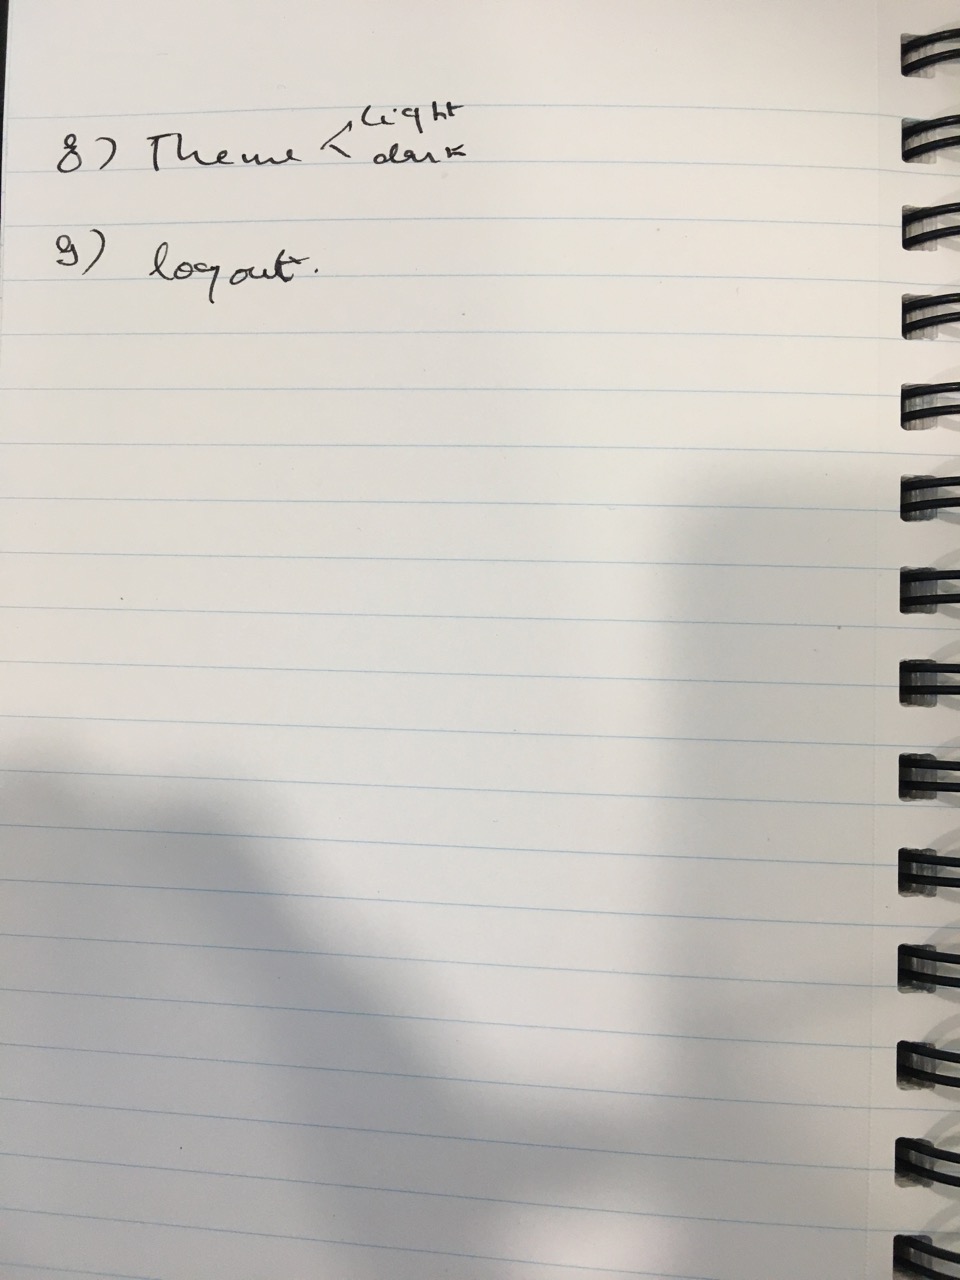 8) Theme < light
dark
9) logout.